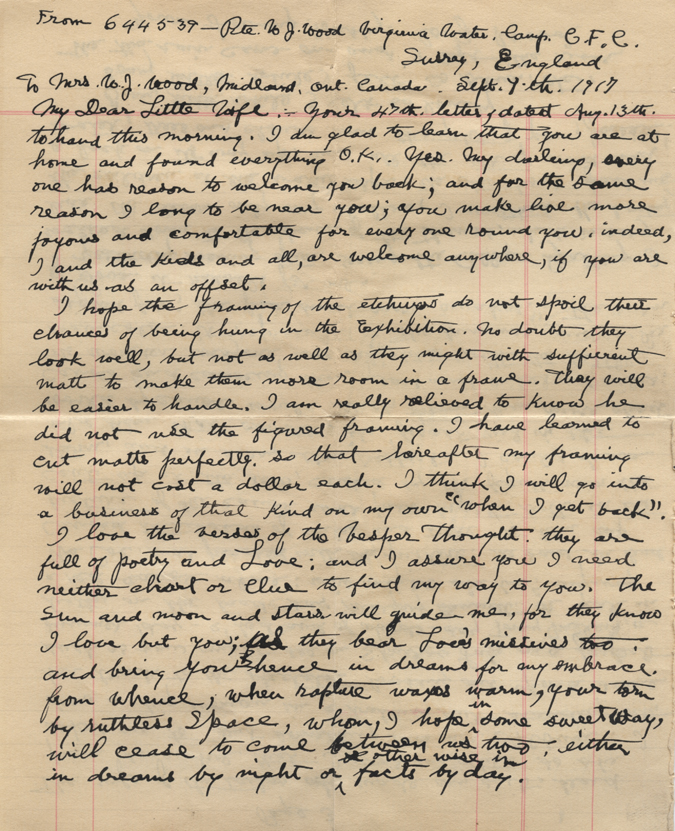 From 644539 — Pte. W J. Wood Virginia Water. Camp. C. F. C.
Surrey, England
To Mrs. W. J. Wood, Midland, Ont. Canada. Sept. 7.th. 1917
My Dear Little Wife :- Your 47th. letter, dated Aug. 13th.
to hand this morning. I am glad to learn that you are at
home and found everything O.K.. Yes. My darling, every
one has reason to welcome you back; and for the same
reason I long to be near you; you make live more
joyous and comfortable for every one round you. indeed,
I and the kids and all, are welcome anywhere, if you are
with us as an offset.
I hope the framing of the etchings do not spoil their
chances of being hung in the Exhibition. No doubt they
look well, but not as well as they might with sufficient
matt to make them more room in a frame. They will
be easier to handle. I am really relieved to know he
did not use the figured framing. I have learned to
cut matts perfectly. so that hereafter my framing
will not cost a dollar each. I think I will go into
a business of that kind on my own "when I get back".
I love the verses of the Vesper Thought. they are
full of poetry and Love; and I assure you I need
neither chart or clue to find my way to you. The
Sun and moon and stars will guide me, for they know
I love but you; they bear Love's missives too.
and bring you hence in dreams for my embrace.
from whence, when rapture waxes warm, your torn
by ruthless Space, whom, I hope, in some sweet way,
will cease to come between us two. either
in dreams by night or other wise in facts by day.